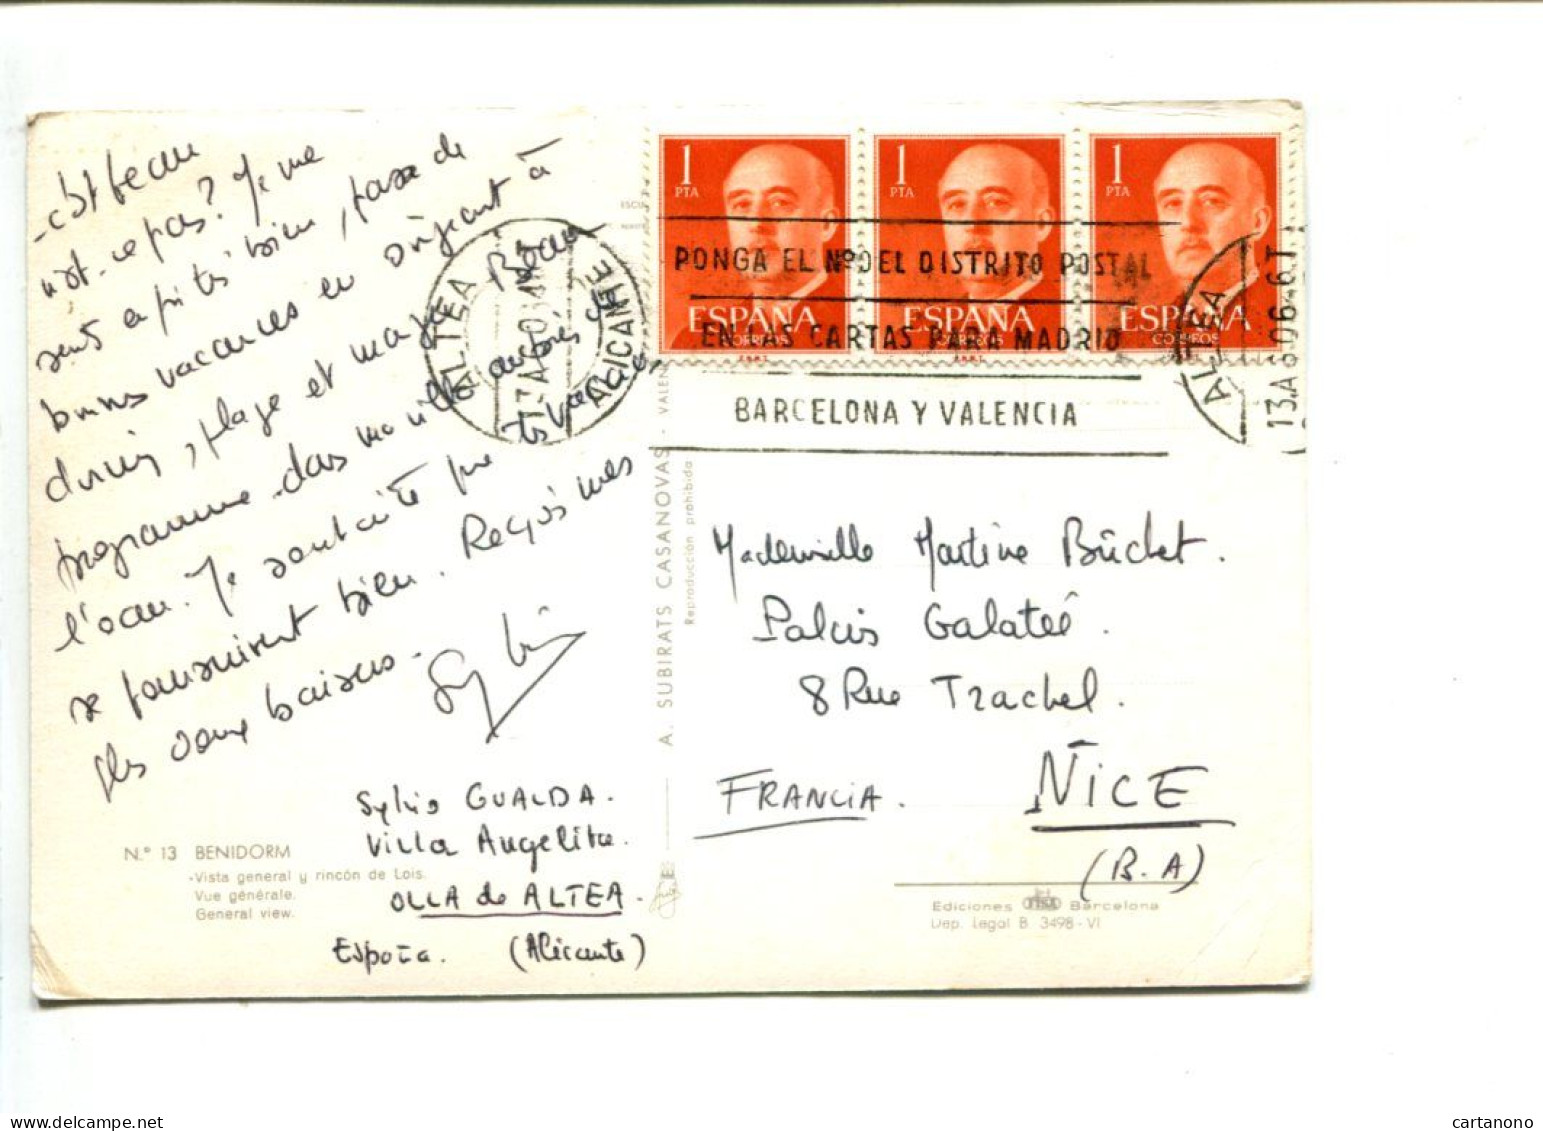 - c'est beau
n'est-ce pas? Je me
sens après bien, passe de
bonnes vacances en
dormir, plage et
programme dans ma villa
l'eau. Je souhaite que tes vacances
se poursuivent bien. Reçois mes
plus doux baisers.
Sylvia
Sylvia GUALDA.
Villa Angelita.
OLLA de ALTEA.
España. (Alicante)
N.º 13 BENIDORM
-Vista general y rincón de Lois.
Vue générale.
General view.
A. SUBIRATS CASANOVAS - VALEN
Reproducción prohibida
1 PTA
ESPAÑA
CORREOS
1 PTA
ESPAÑA
CORREOS
1 PTA
ESPAÑA
CORREOS
ALTEA
ALICANTE
PONGA EL Nº DEL DISTRITO POSTAL
EN LAS CARTAS PARA MADRID
BARCELONA Y VALENCIA
ALTEA
Mademoiselle Martine Bûchet.
Palais Galatée.
8 Rue Trachel.
FRANCIA. NICE
(B.A)
Ediciones Barcelona
Dep. Legal B. 3498-VI
cartanono